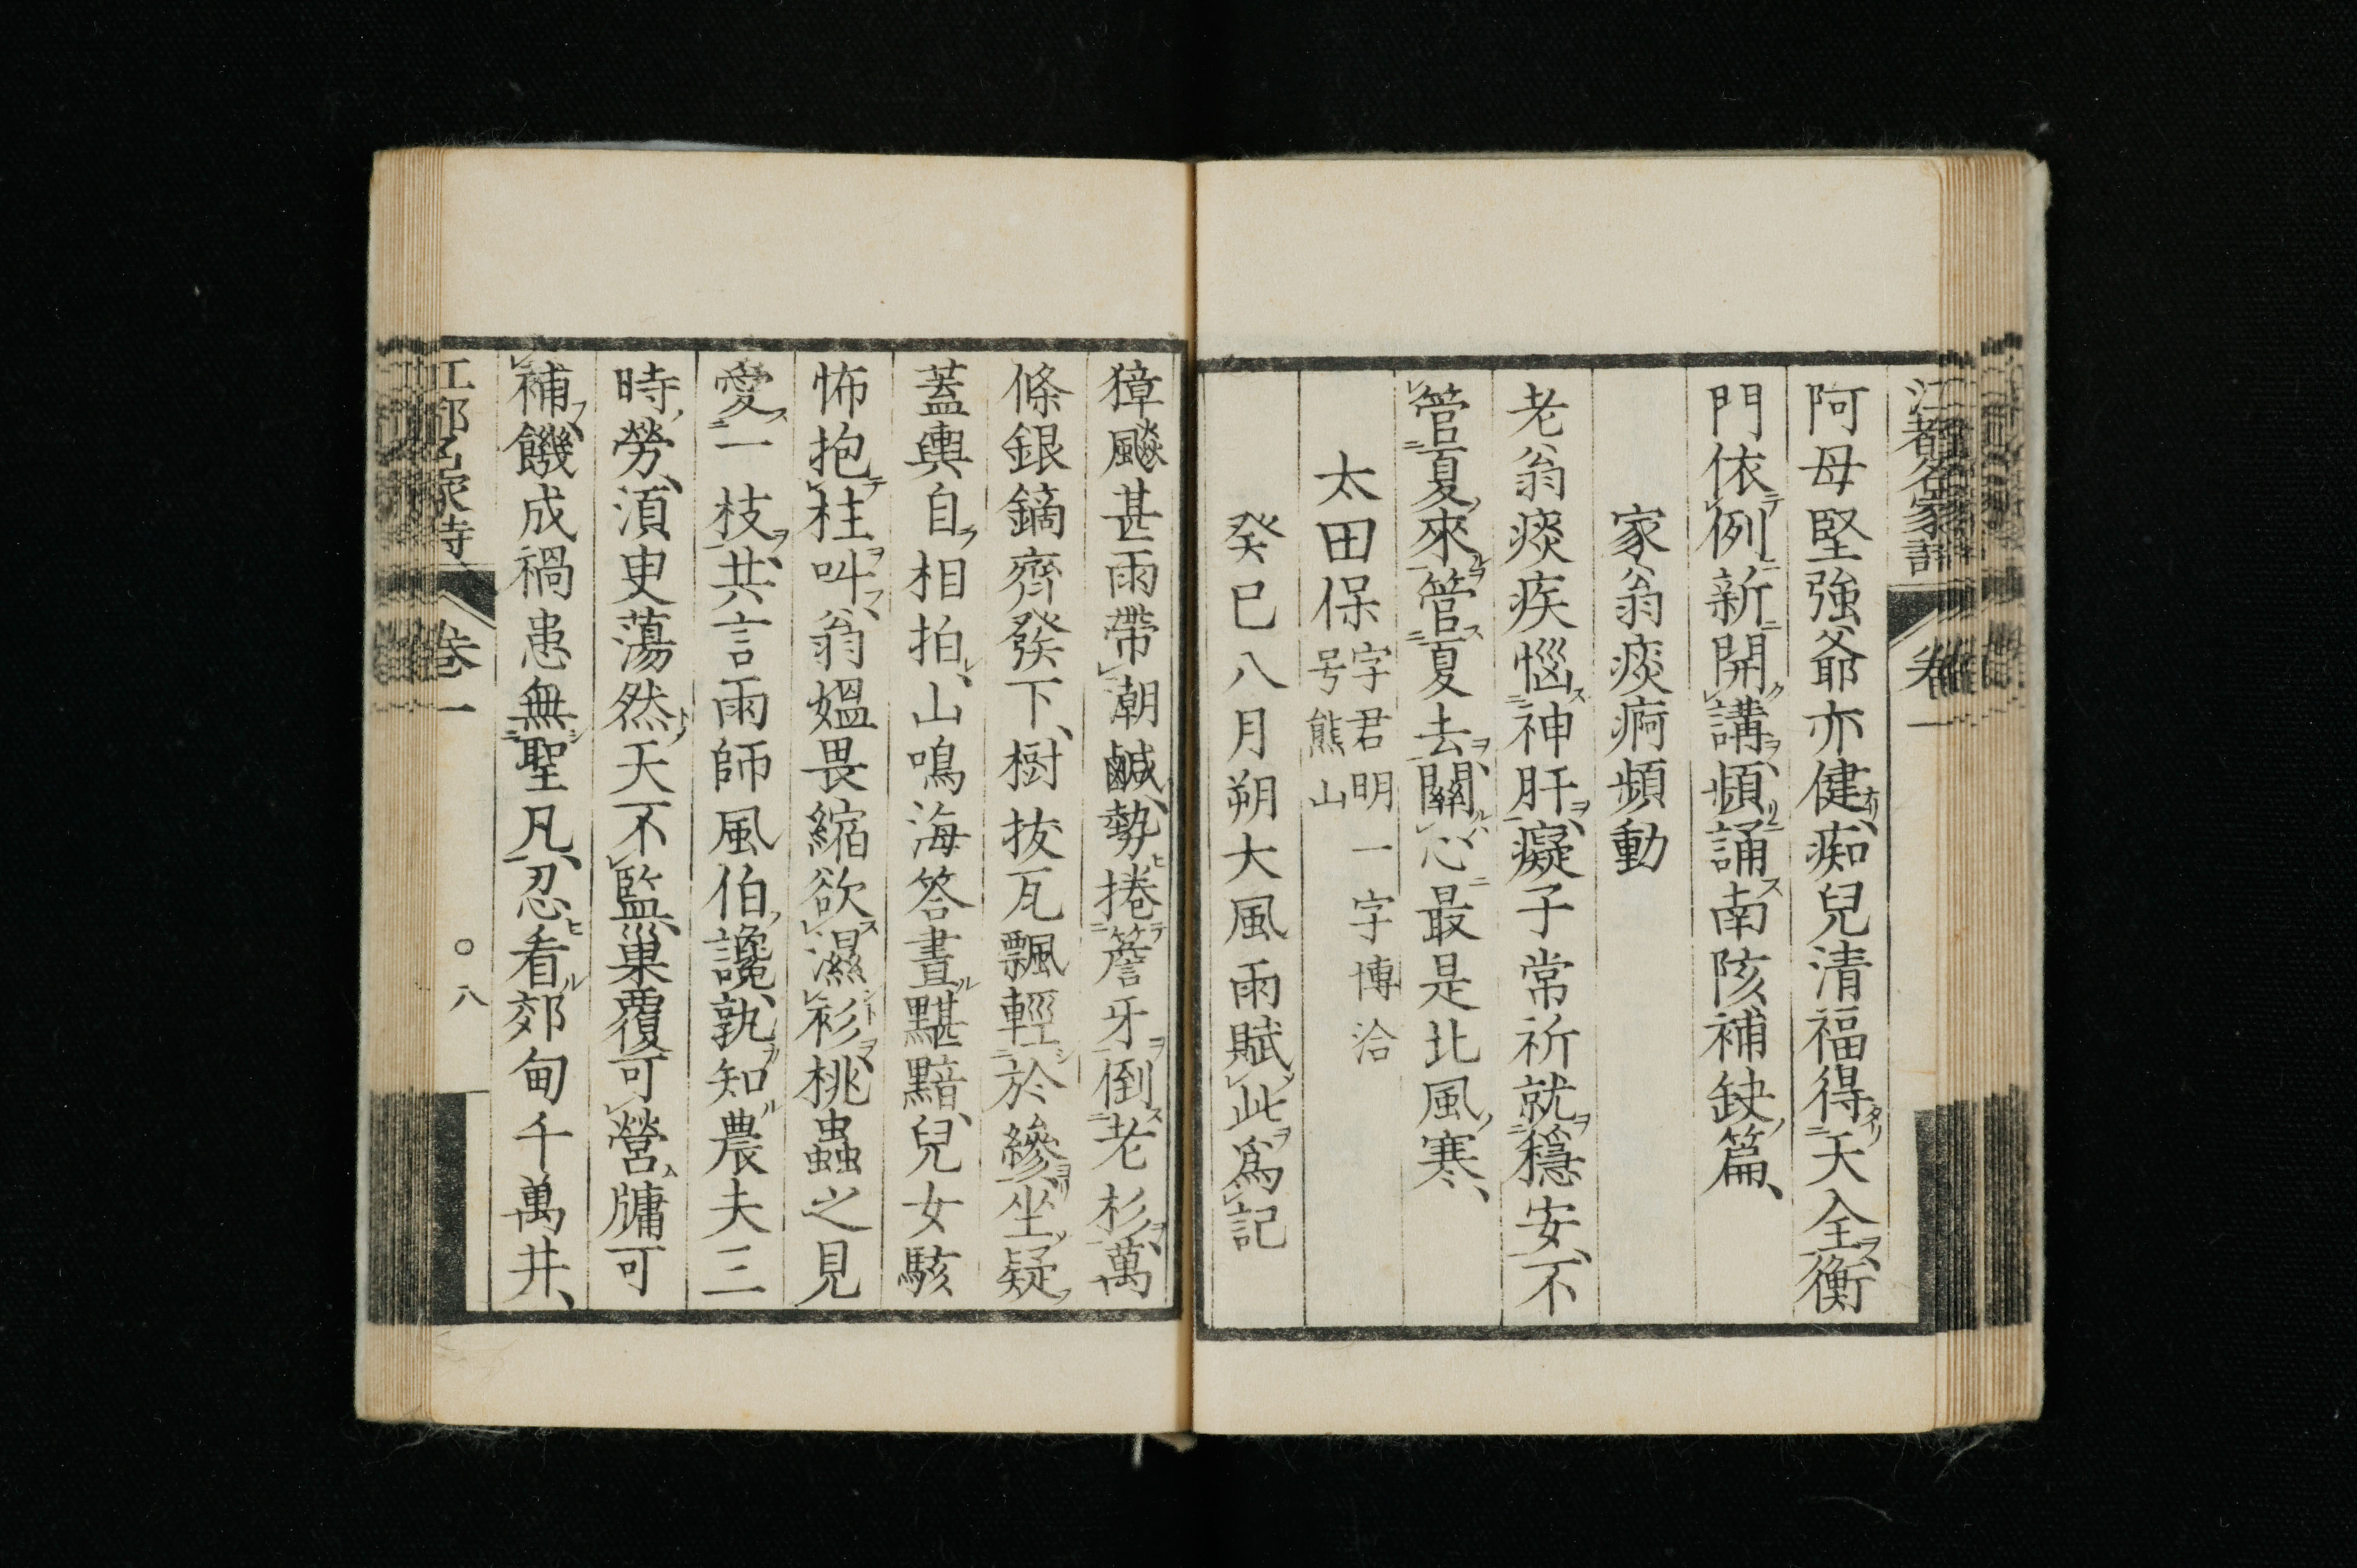 江都名家詩 卷一
阿母堅強爺亦健、痴兒清福得天全、衡
門依例新開講、頻誦南陔補缺篇、
家翁痰痾頻動
老翁痰疾惱神肝、癡子常祈就穩安、不
管夏來管夏去、關心最是北風寒、
太田保字君明一字博洽号熊山
癸巳八月朔大風雨賦此爲記
獐飈甚雨帶潮鹹、勢捲簷牙倒老杉、萬
條銀鏑齊發下、樹抜瓦飄輕於縿、坐疑
蓋輿自相拍、山鳴海答晝黮黯、兒女駭
怖抱柱叫、翁媼畏縮欲濕衫、桃蟲之見
愛一枝、共言雨師風伯讒、孰知農夫三
時勞、湏臾蕩然天不監、巢覆可營牗可
補、饑成禍患無聖凡、忍看郊甸千萬井、
江都名家詩 卷一 〇八